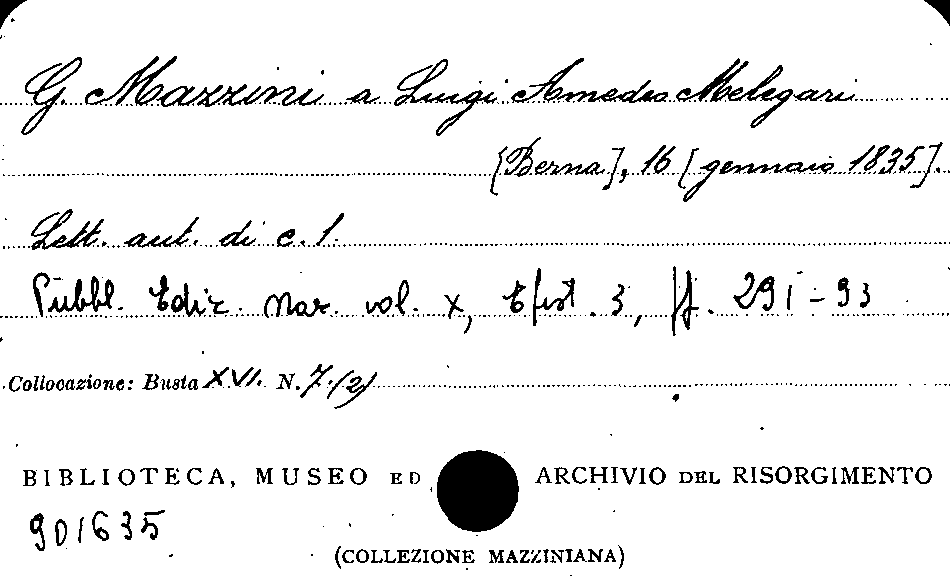 G. Mazzini a Luigi Amedeo Melegari
[Berna], 16 [gennaio 1835].
Lett. aut. di c. 1.
Pubbl. Ediz. Naz. vol. X, Epist. 3, pp. 291-93
Collocazione: Busta XVI. N. 7.(2)
BIBLIOTECA, MUSEO ED ARCHIVIO DEL RISORGIMENTO
901635
(COLLEZIONE MAZZINIANA)